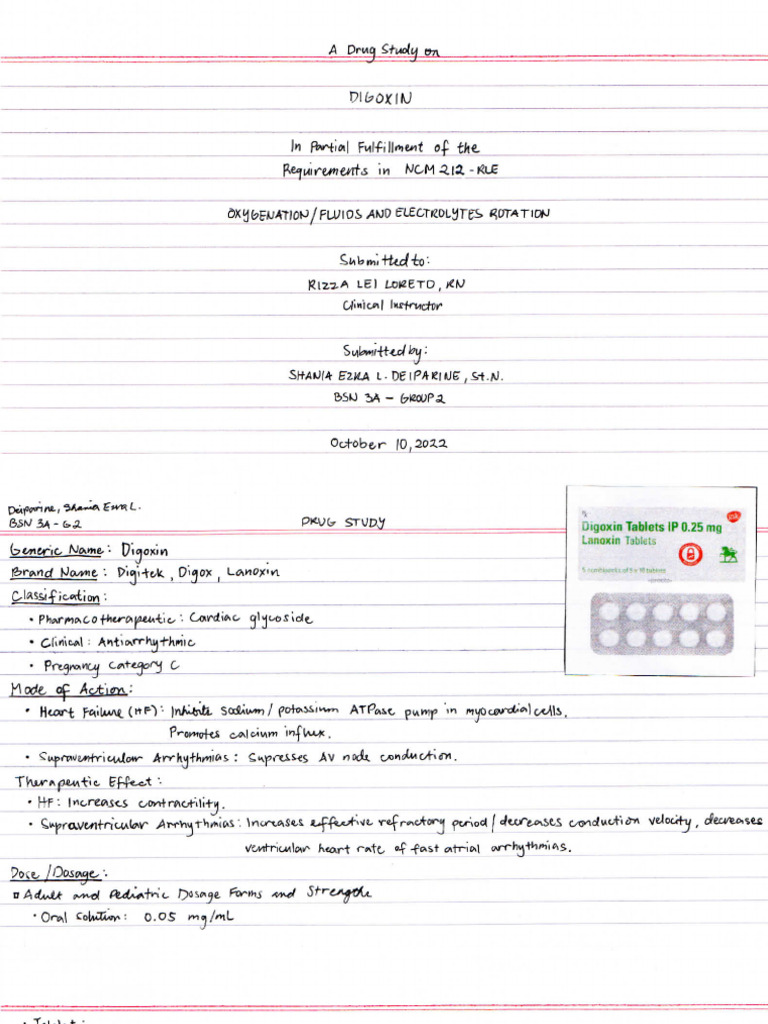 A Drug Study on
DIGOXIN
In Partial Fulfillment of the
Requirements in NCM 212 - RLE
OXYGENATION/FLUIDS AND ELECTROLYTES ROTATION
Submitted to:
RIZZA LEI LORETO, RN
Clinical Instructor
Submitted by:
SHANIA EZRA L. DEIPARINE, St.N.
BSN 3A - GROUP 2
October 10, 2022
Deiparine, Shania Ezra L.
BSN 3A - G2
DRUG STUDY
Digoxin Tablets IP 0.25 mg
Lanoxin Tablets
gsk
Generic Name: Digoxin
Brand Name: Digitek, Digox, Lanoxin
Classification:
• Pharmacotherapeutic: Cardiac glycoside
• Clinical: Antiarrhythmic
• Pregnancy Category C
Mode of Action:
• Heart Failure (HF): Inhibits sodium/potassium ATPase pump in myocardial cells.
Promotes calcium influx.
• Supraventricular Arrhythmias: Supresses AV node conduction.
Therapeutic Effect:
• HF: Increases contractility.
• Supraventricular Arrhythmias: Increases effective refractory period/decreases conduction velocity, decreases
ventricular heart rate of fast atrial arrhythmias.
Dose/Dosage:
Adult and Pediatric Dosage Forms and Strength
• Oral Solution: 0.05 mg/mL